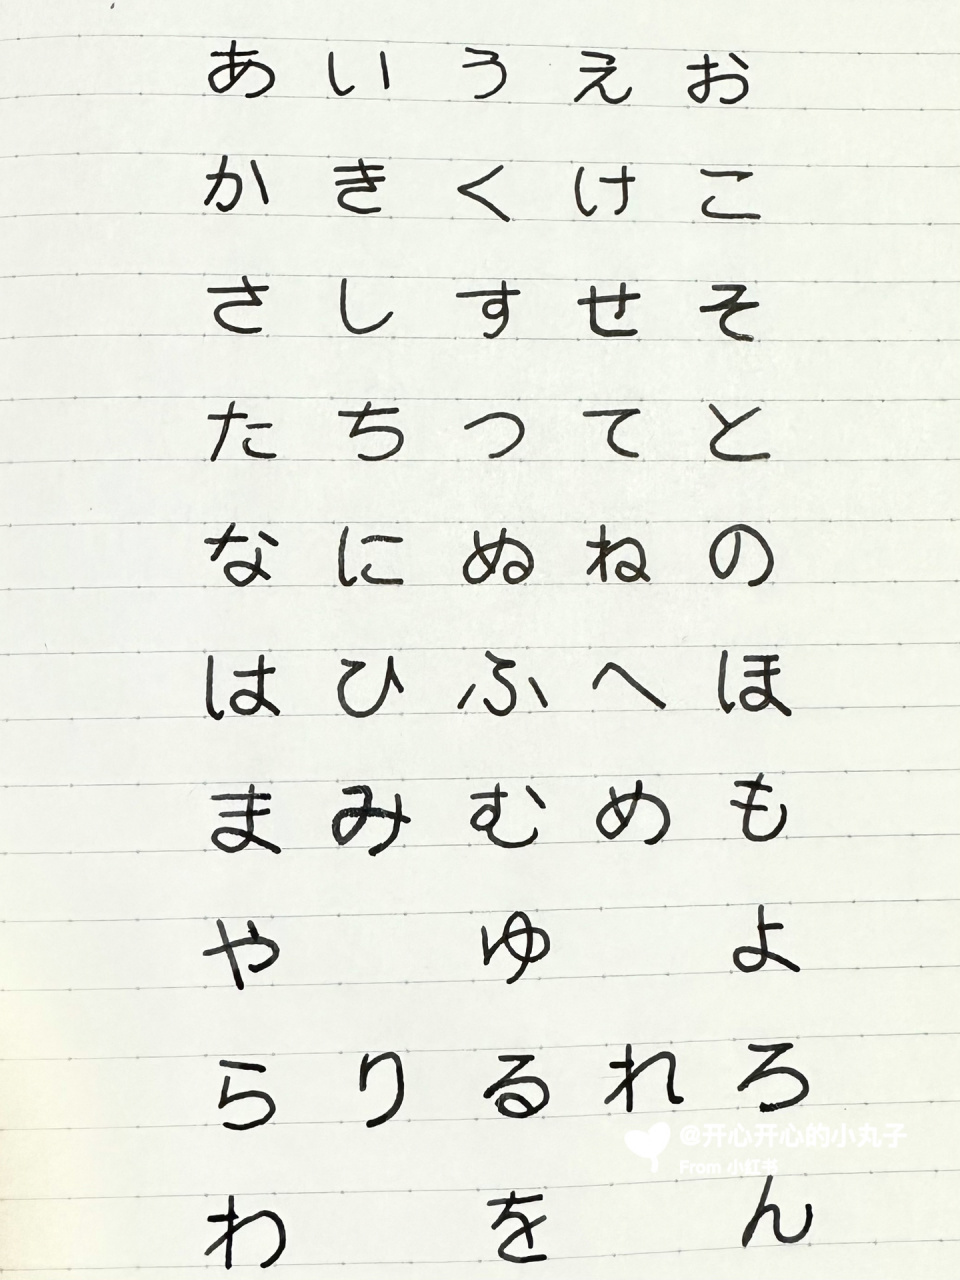 あ い う え お
か き く け こ
さ し す せ そ
た ち つ て と
な に ぬ ね の
は ひ ふ へ ほ
ま み む め も
や ゆ よ
ら り る れ ろ
@开心开心的小丸子
From 小红书
わ を ん